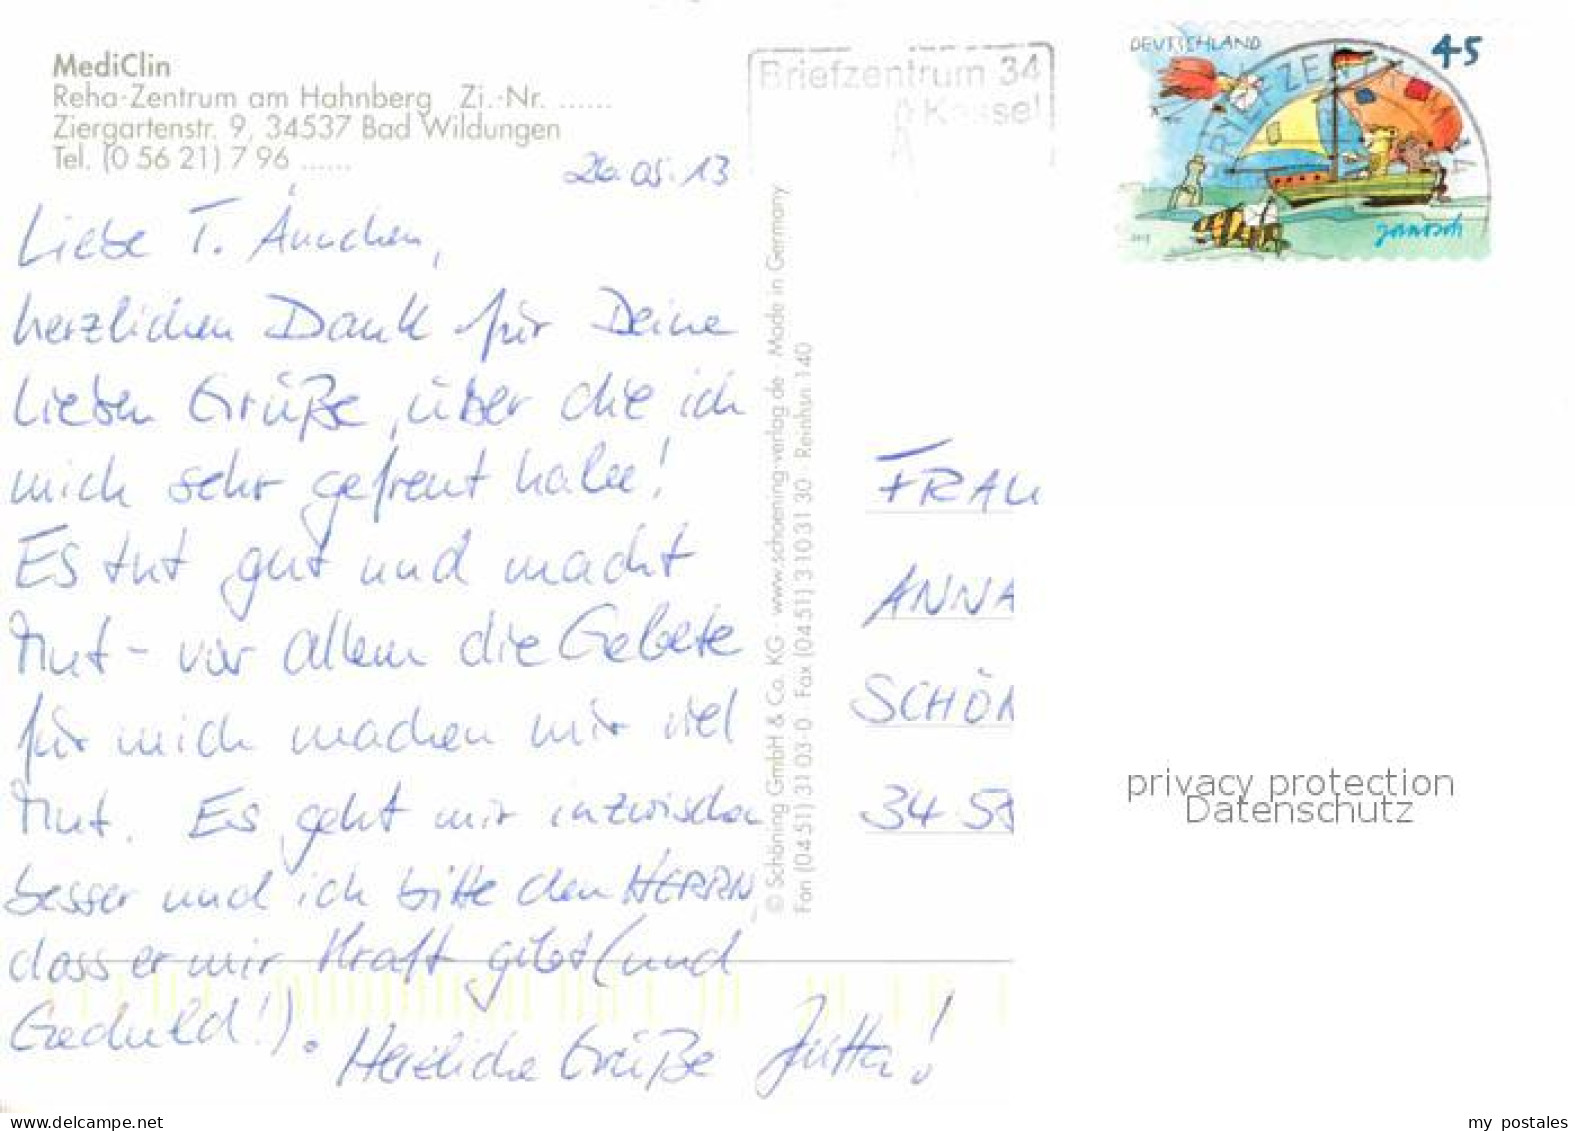 MediClin
Reha-Zentrum am Hahnberg Zi.-Nr. ......
Ziergartenstr. 9, 34537 Bad Wildungen
Tel. (0 56 21) 7 96 ......
26.05.13
Liebe T. Ännchen,
herzlichen Dank für Deine
lieben Grüße, über die ich
mich sehr gefreut habe!
Es tut gut und macht
Mut - vor allem die Gebete
für mich machen mir viel
Mut. Es geht mir inzwischen
besser und ich bitte den HERRN,
dass er mir Kraft gibt (und
Geduld!).
Herzliche Grüße Jutta!
© Schöning GmbH & Co. KG · www.schoening-verlag.de · Made in Germany
Fon (04 51) 31 03-0 · Fax (04 51) 3 10 31 30 · Reinhsn 140
Briefzentrum 34
Kassel
A
DEUTSCHLAND
45
BRIEFZENTRUM 34
Janosch
FRAU
ANNA
SCHÖN
34 59
privacy protection
Datenschutz
my postales